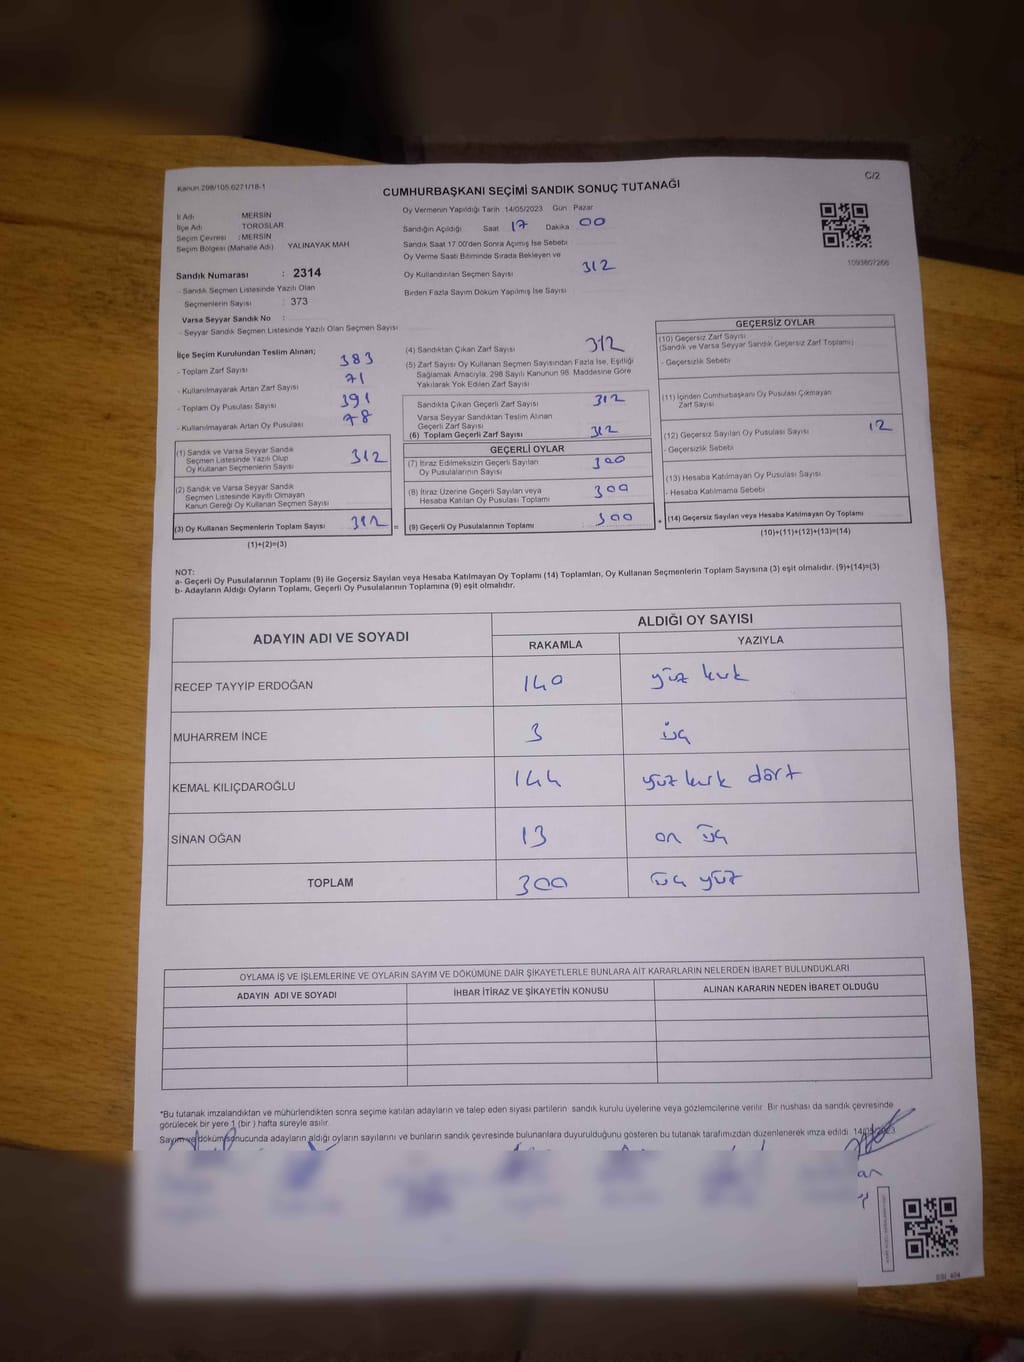 Kanun 298/105,6271/18-1
C/2
CUMHURBAŞKANI SEÇİMİ SANDIK SONUÇ TUTANAĞI
İl Adı MERSİN
İlçe Adı TOROSLAR
Seçim Çevresi : MERSİN
Seçim Bölgesi (Mahalle Adı) YALINAYAK MAH
Sandık Numarası : 2314
- Sandık Seçmen Listesinde Yazılı Olan
Seçmenlerin Sayısı : 373
Varsa Seyyar Sandık No :
- Seyyar Sandık Listesinde Yazılı Olan Seçmen Sayısı
Oy Vermenin Yapıldığı Tarih : 14/05/2023 Gün : Pazar
Sandığın Açıldığı Saat 17 Dakika 00
Sandık Saat 17:00'den Sonra Açımış İse Sebebi
Oy Verme Saati Bitiminde Sırada Bekleyen ve
Oy Kullandırılan Seçmen Sayısı 312
Birden Fazla Sayım Döküm Yapılmış İse Sayısı
1093607266
İlçe Seçim Kurulundan Teslim Alınan;
- Toplam Zarf Sayısı 383
- Kullanılmayarak Artan Zarf Sayısı 71
- Toplam Oy Pusulası Sayısı 391
- Kullanılmayarak Artan Oy Pusulası 78
(1) Sandık ve Varsa Seyyar Sandık
Seçmen Listesinde Yazılı Olup
Oy Kullanan Seçmenlerin Sayısı 312
(2) Sandık ve Varsa Seyyar Sandık
Seçmen Listesinde Kayıtlı Olmayan
Kanun Gereği Oy Kullanan Seçmen Sayısı
(3) Oy Kullanan Seçmenlerin Toplam Sayısı 312 =
(1)+(2)=(3)
(4) Sandıktan Çıkan Zarf Sayısı 312
(5) Zarf Sayısı Oy Kullanan Seçmen Sayısından Fazla İse, Eşitliği
Sağlamak Amacıyla, 298 Sayılı Kanunun 98. Maddesine Göre
Yakılarak Yok Edilen Zarf Sayısı
Sandıkta Çıkan Geçerli Zarf Sayısı 312
Varsa Seyyar Sandıktan Teslim Alınan
Geçerli Zarf Sayısı
(6) Toplam Geçerli Zarf Sayısı 312
GEÇERLİ OYLAR
(7) İtiraz Edilmeksizin Geçerli Sayılan
Oy Pusulalarının Sayısı 300
(8) İtiraz Üzerine Geçerli Sayılan veya
Hesaba Katılan Oy Pusulası Toplamı 300
(9) Geçerli Oy Pusulalarının Toplamı 300 +
GEÇERSİZ OYLAR
(10) Geçersiz Zarf Sayısı
(Sandık ve Varsa Seyyar Sandık Geçersiz Zarf Toplamı)
- Geçersizlik Sebebi
(11) İçinden Cumhurbaşkanı Oy Pusulası Çıkmayan
Zarf Sayısı
(12) Geçersiz Sayılan Oy Pusulası Sayısı 12
- Geçersizlik Sebebi
(13) Hesaba Katılmayan Oy Pusulası Sayısı
- Hesaba Katılmama Sebebi
(14) Geçersiz Sayılan veya Hesaba Katılmayan Oy Toplamı
(10)+(11)+(12)+(13)=(14)
NOT:
a- Geçerli Oy Pusulalarının Toplamı (9) ile Geçersiz Sayılan veya Hesaba Katılmayan Oy Toplamı (14) Toplamları, Oy Kullanan Seçmenlerin Toplam Sayısına (3) eşit olmalıdır. (9)+(14)=(3)
b- Adayların Aldığı Oyların Toplamı, Geçerli Oy Pusulalarının Toplamına (9) eşit olmalıdır.
ADAYIN ADI VE SOYADI ALDIĞI OY SAYISI
RAKAMLA YAZIYLA
RECEP TAYYİP ERDOĞAN 140 yüz kırk
MUHARREM İNCE 3 üç
KEMAL KILIÇDAROĞLU 144 yüz kırk dört
SİNAN OĞAN 13 on üç
TOPLAM 300 üç yüz
OYLAMA İŞ VE İŞLEMLERİNE VE OYLARIN SAYIM VE DÖKÜMÜNE DAİR ŞİKAYETLERLE BUNLARA AİT KARARLARIN NELERDEN İBARET BULUNDUKLARI
ADAYIN ADI VE SOYADI İHBAR İTİRAZ VE ŞİKAYETİN KONUSU ALINAN KARARIN NEDEN İBARET OLDUĞU
*Bu tutanak imzalandıktan ve mühürlendikten sonra seçime katılan adayların ve talep eden siyasi partilerin sandık kurulu üyelerine veya gözlemcilerine verilir. Bir nüshası da sandık çevresinde
görülecek bir yere 1 (bir ) hafta süreyle asılır.
Sayım ve döküm sonucunda adayların aldığı oyların sayılarını ve bunların sandık çevresinde bulunanlara duyurulduğunu gösteren bu tutanak tarafımızdan düzenlenerek imza edildi. 14/05/2023